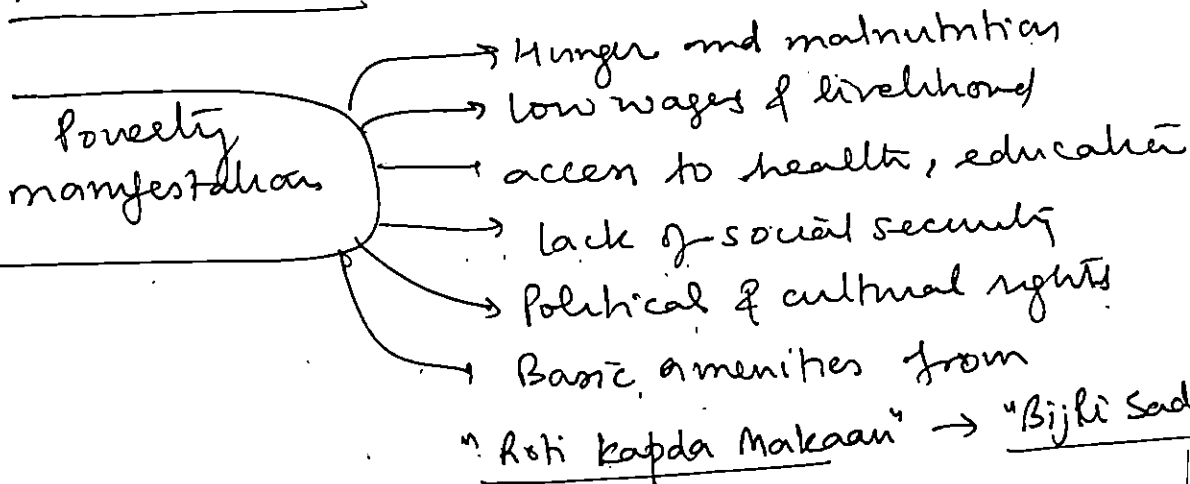 Hunger and malnutrition
Poverty
manifestation
low wages & livelihood
access to health, education
lack of social security
Political & cultural rights
Basic amenities from
"Roti Kapda Makaan" → "Bijli Sad